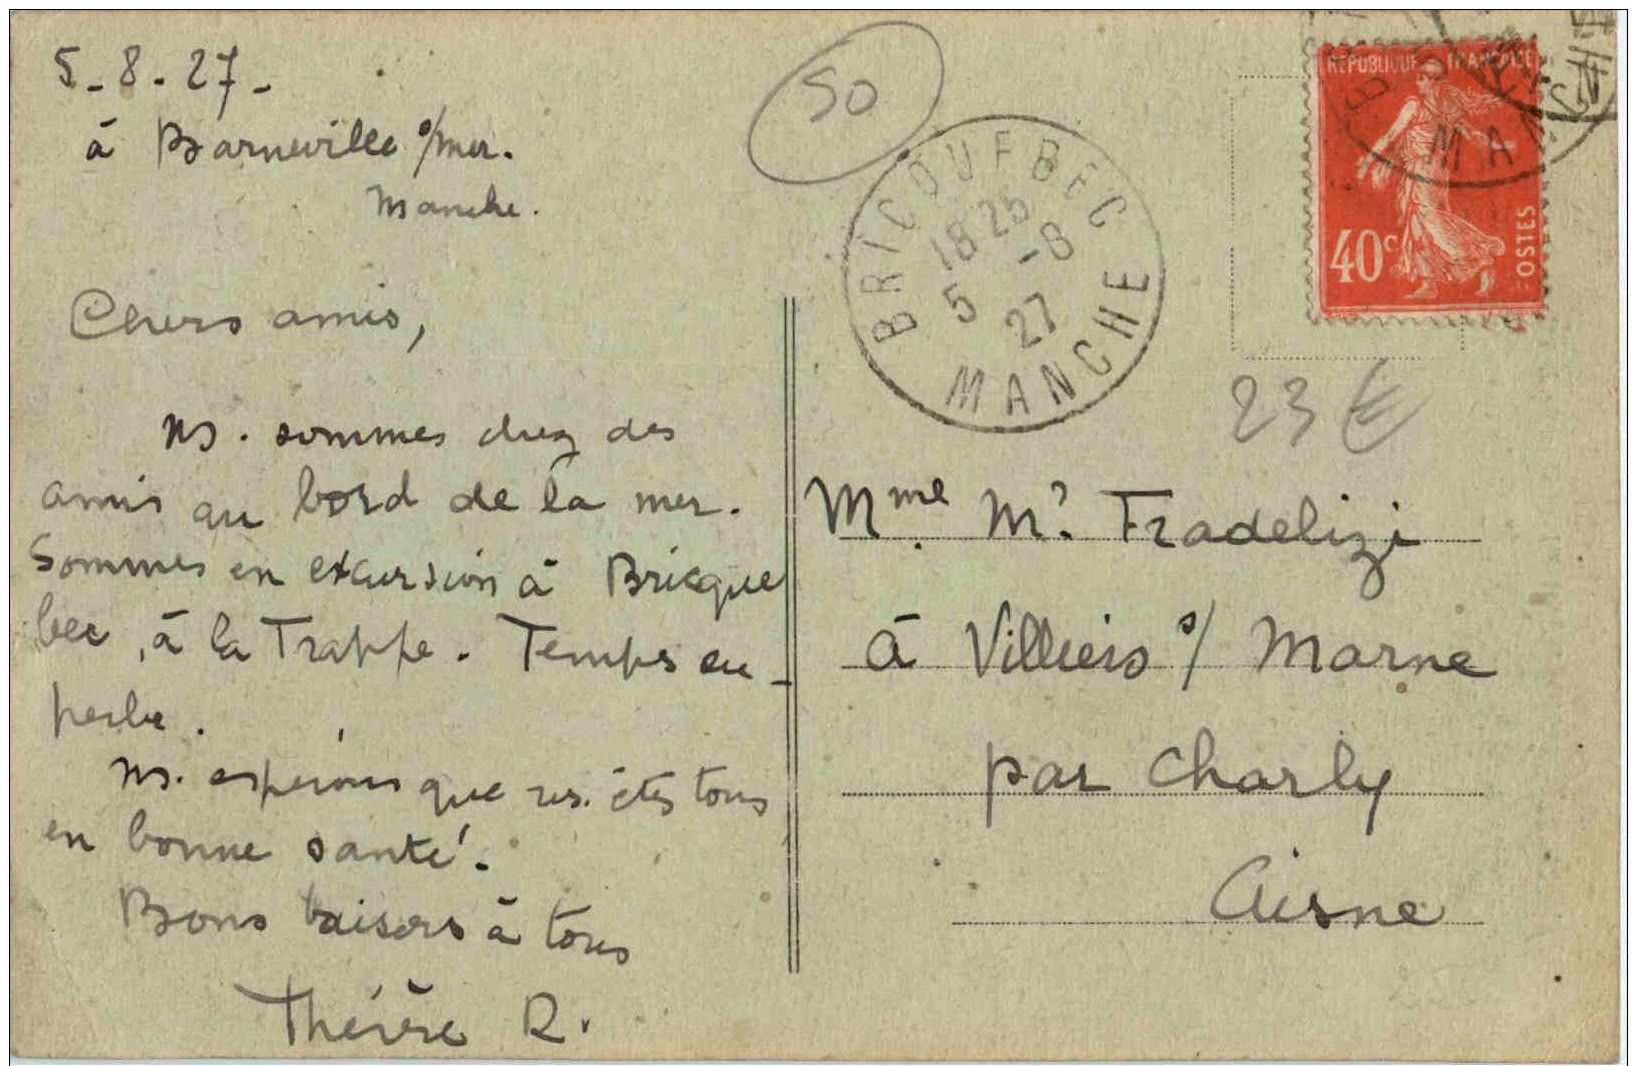 5-8-27-
à Barneville s/mer.
Manche.
Chers amis,
Ns. sommes chez des
amis au bord de la mer.
Sommes en excursion à Bricque
bec, à la Trappe. Temps su-
perbe.
Ns. espérons que vs. êtes tous
en bonne santé.
Bons baisers à tous
Thérèse R.
50
BRICQUEBEC
18 25
5 -8
27
MANCHE
RÉPUBLIQUE FRANÇAISE
40c
POSTES
MANCHE
23 €
Mme. Mce. Fradelizi
à Villiers s/ Marne
par Charly
Aisne